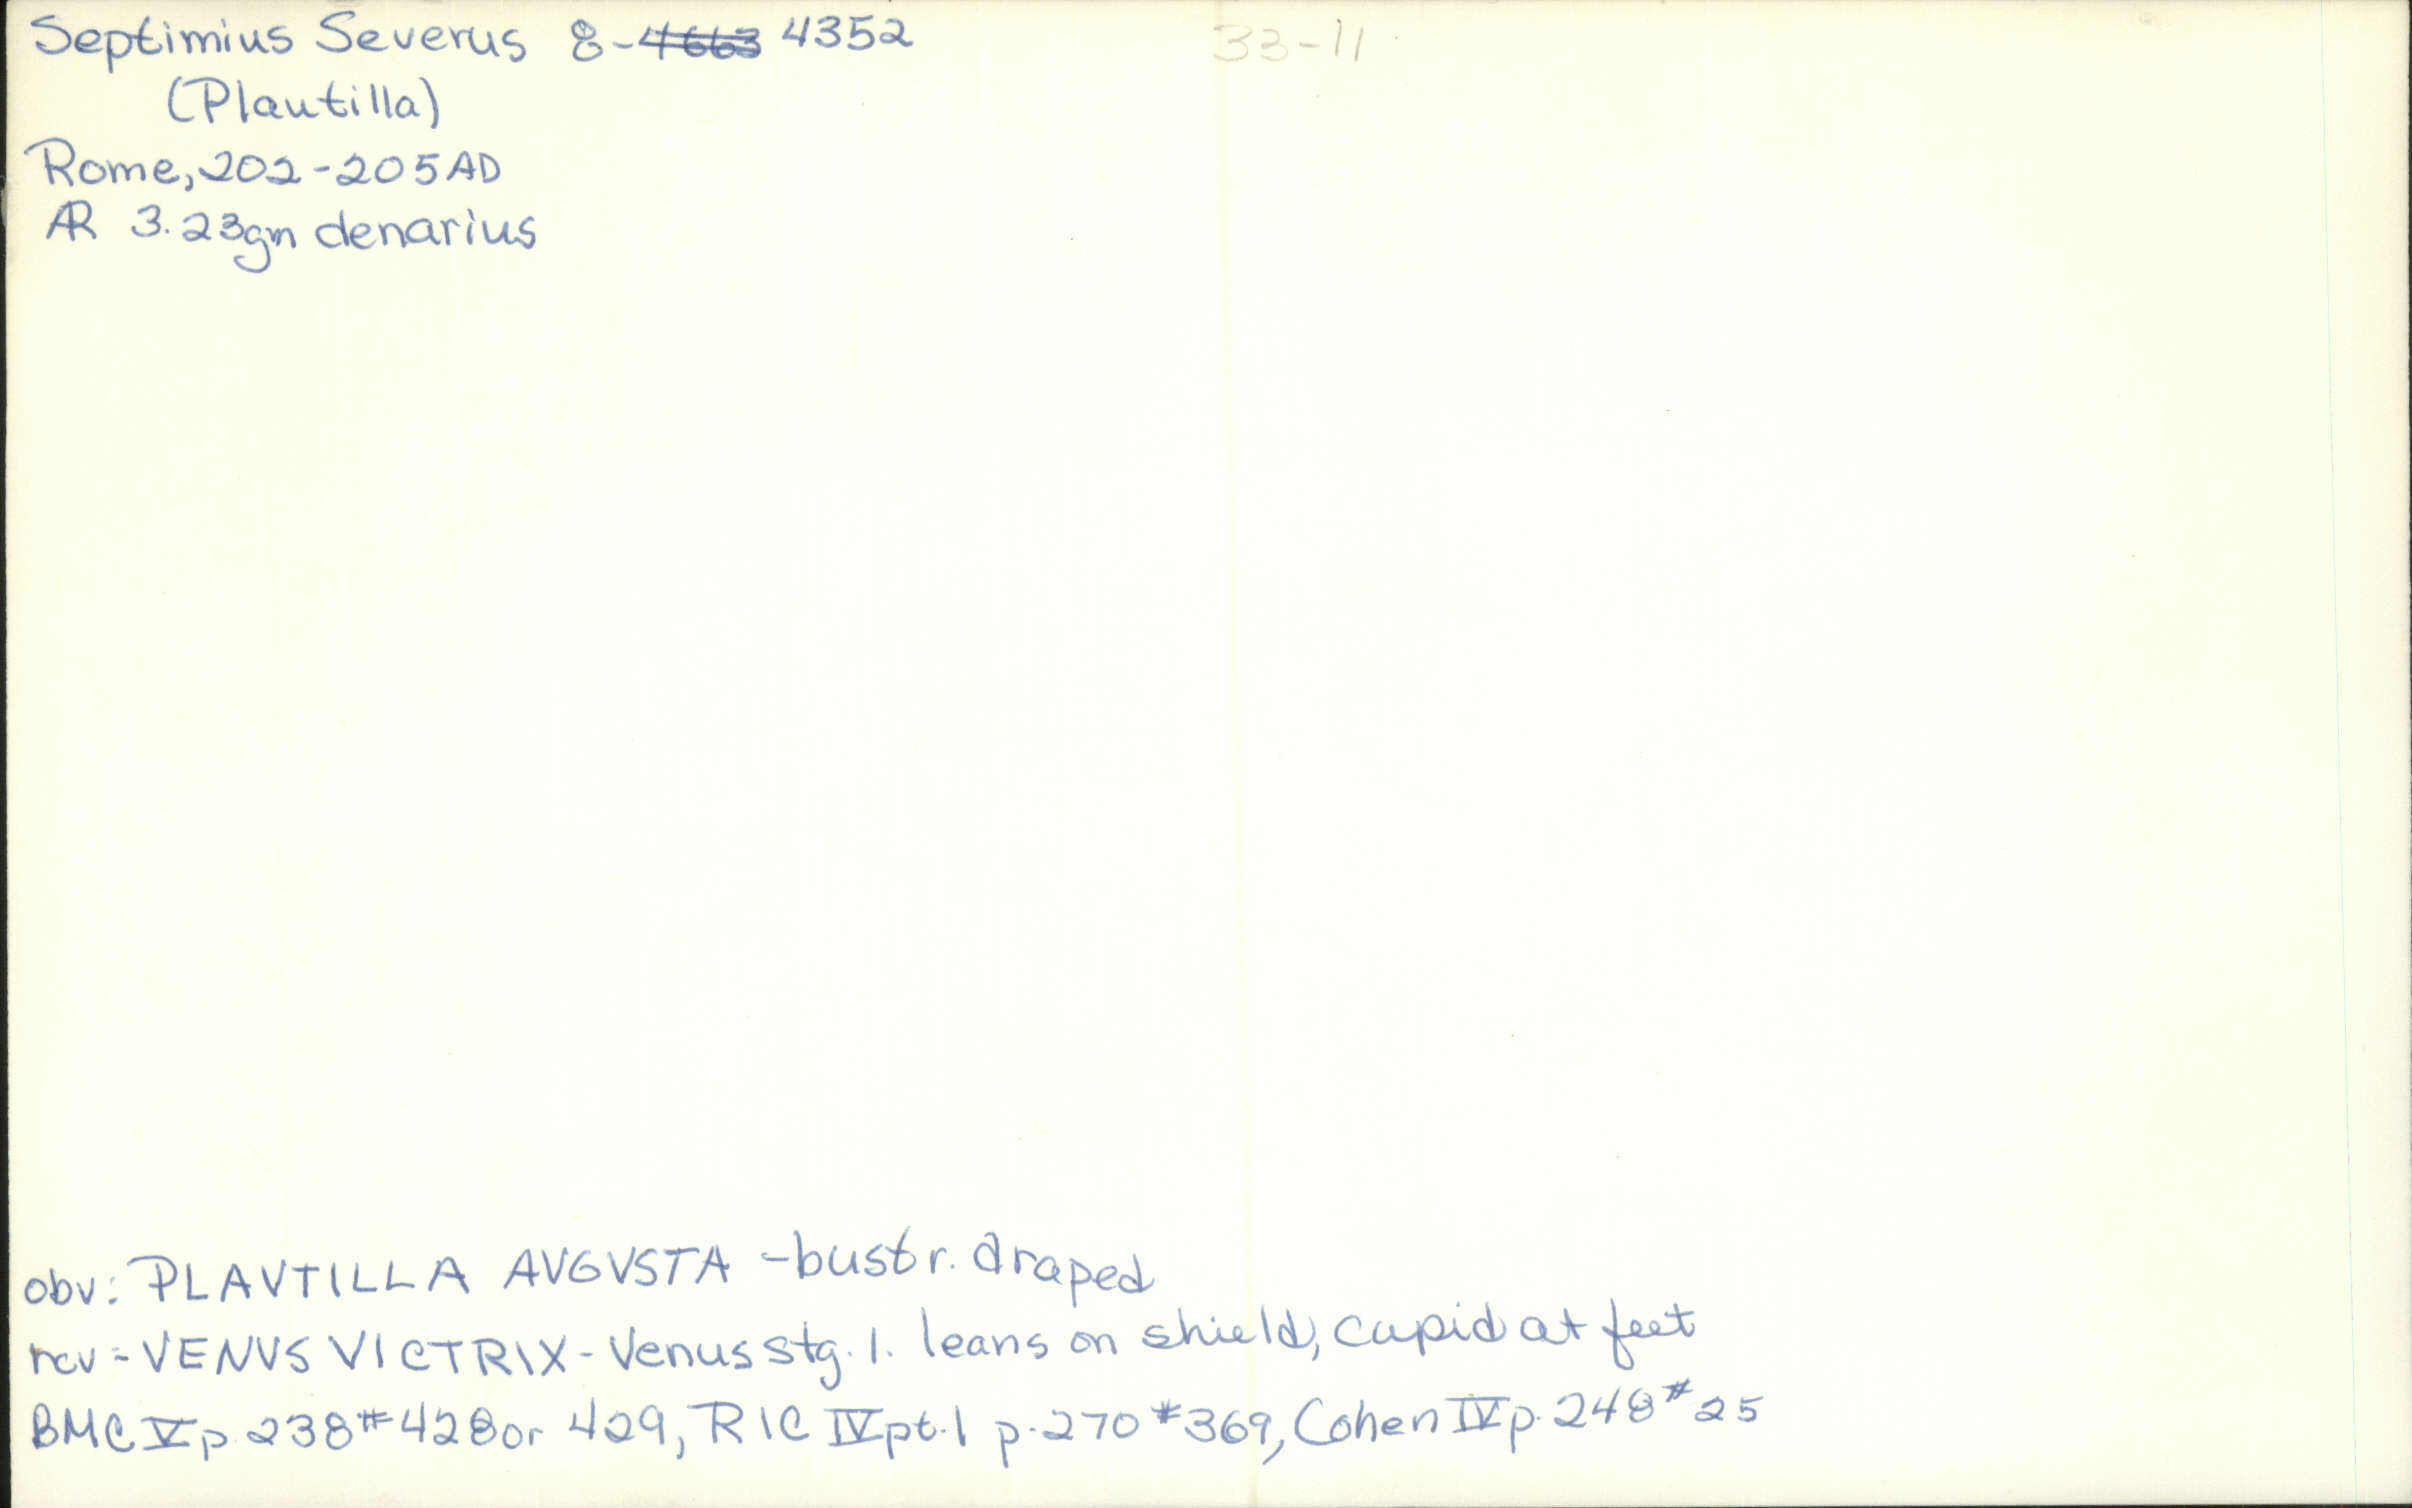 Septimius Severus 8-4663 4352 33-11
(Plautilla)
Rome, 202-205AD
AR 3.23gm denarius
obv: PLAVTILLA AVGVSTA - bust r. draped
rev - VENVS VICTRIX - Venus stg. l. leans on shield, cupid at feet
BMC V p. 238 # 428 or 429, RIC IV pt. 1 p. 270 # 369, Cohen IV p. 248 # 25